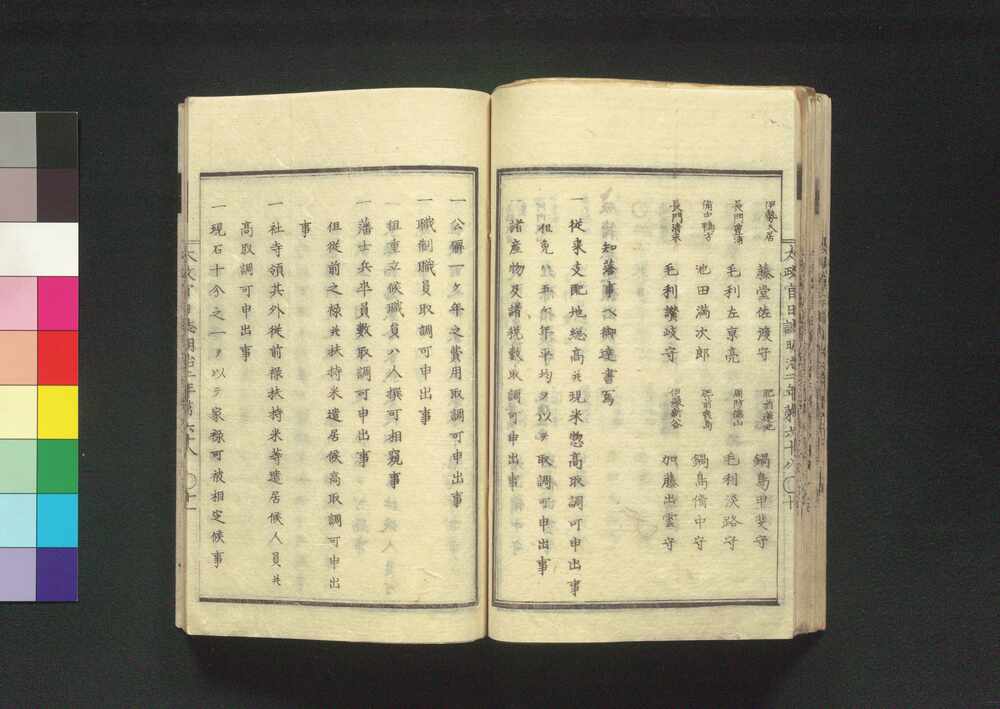 伊勢久居 藤堂佐渡守 肥前蓮池 鍋島甲斐守
長門豊浦 毛利左京亮 周防徳山 毛利淡路守
備中鴨方 池田満次郎 肥前鹿島 鍋島備中守
長門清末 毛利讃岐守 伊豫新谷 加藤出雲守
知藩事ヘ御達書写
一従来支配地総高並現米惣高取調可申出事
但免ハ五ヶ年平均ヲ以テ取調可申出事
一諸産物及諸税数取調可申出事
太政官日誌明治二年第六十八 〇十
一公廨一ヶ年之費用取調可申出事
一職制職員取調可申出事
一但重立候職員ハ人撰可相窺事
一藩士兵卒員数取調可申出事
但従前之禄並扶持米遣居候高取調可申出
事
一社寺領其外従前禄扶持米等遣居候人員並
高取調可申出事
一現石十分之一ヲ以テ家禄可被相定候事
太政官日誌明治二年第六十八 〇十一